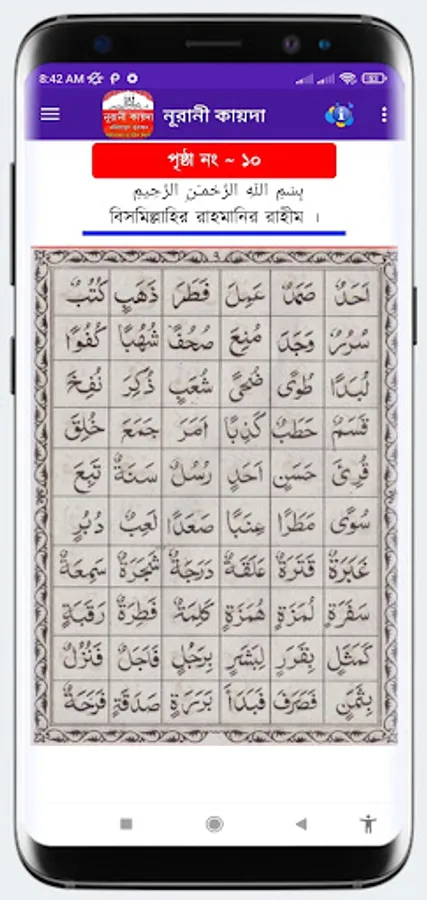 8:42 AM
নূরানী কায়দা
নূরানী কায়দা
পৃষ্ঠা নং ~ ১০
بِسْمِ اللهِ الرَّحْمٰنِ الرَّحِيْمِ
বিসমিল্লাহির রাহমানির রাহীম ।
٩
اَحَدٌ صَمَدٌ عَمِلَ فَطَرَ ذَهَبٍ كُتُبٌ
سُرُرٌ وَجَدَ مُنِعَ صُحُفٌ شُهُبًا كُفُوًا
لُبَدًا طُوًى ضُحًى شُعَبٍ ذُكِرَ نُفِخَ
قَسَمٌ حَطَبٌ كَذِبًا اَمَرَ جَمَعَ خُلِقَ
قُرِئَ حَسَنٍ اَحَدٍ رُسُلٌ سَنَةٌ تَبِعَ
سُوًى مَطَرًا عِنَبًا صَعَدًا لَعِبٌ دُبُرٍ
غَبَرَةٌ قَتَرَةٌ عَلَقَةٌ دَرَجَةٌ شَجَرَةٌ سَمِعَهٗ
سَفَرَةٍ لُمَزَةٍ هُمَزَةٍ كَلِمَةٌ فِطْرَةٌ رَقَبَةٍ
كَمَثَلِ بِقَرَرٍ لِبَشَرٍ بِرَجُلٍ فَاَجَلٌ فَنُزُلٌ
بِثَمَنٍ فَصَرَفَ فَبَدَأَ بَرَرَةٍ صَدَقَةٍ فَرِحَةٌ